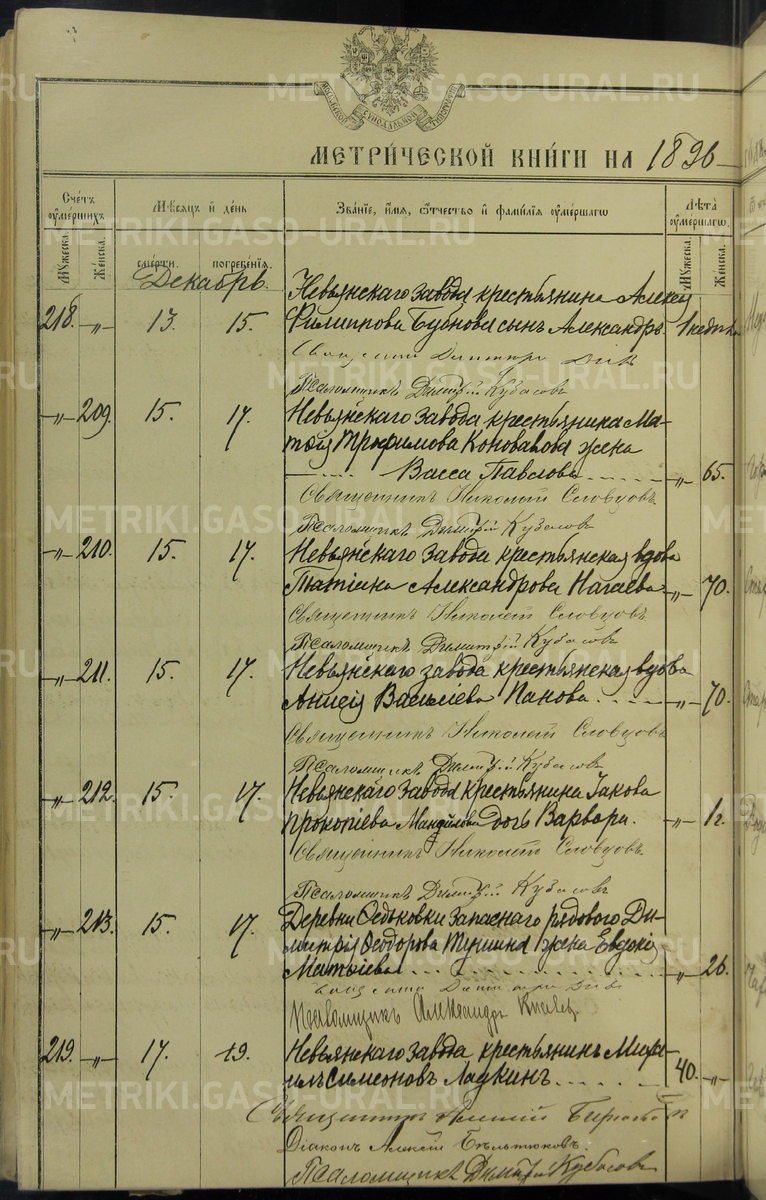 МЕТРИ́ЧЕСКОЙ КНИ́ГИ НА 1896
Сче́тъ ᲂу҆ме́ршихъ
Мѣ́сяцъ и҆ де́нь
Зва́нїе, и҆́мя, ѻ҆́тчество и҆ фами́лїя ᲂу҆ме́ршагѡ
Лѣ́та ᲂу҆ме́ршагѡ.
Мꙋ́жеска. Же́нска. сме́рти. погребе́нїя. Мꙋ́жеска. Же́нска.
Декабрь.
Невьянскаго завода крестьянина Алексѣя
218. -„- 13. 15. Филиппова Бубнова сынъ Александръ. 1 недѣли
Псаломщикъ Димитрій Кубасовъ
Невьянскаго завода крестьянина Ма-
-„- 209. 15. 17. тѳія Трифимова Коновалова жена
Васса Павлова -„- 65.
Священникъ Николай Словцовъ
Псаломщикъ Димитрій Кубасовъ
-„- 210. 15. 17. Невьянскаго завода крестьянская вдова
Татіана Александрова Нагаева -„- 70.
Священникъ Николай Словцовъ
Псаломщикъ Димитрій Кубасовъ
-„- 211. 15. 17. Невьянскаго завода крестьянская вдова
Анисія Васильева Панова -„- 70.
Священникъ Николай Словцовъ
Псаломщикъ Димитрій Кубасовъ
-„- 212. 15. 17. Невьянскаго завода крестьянина Іакова
Прокопіева дочь Варвара. -„- 1 г.
Священникъ Николай Словцовъ
Псаломщикъ Димитрій Кубасовъ
-„- 213. 15. 17. Деревни Ѳедьковки запаснаго рядового Ди-
митрія Ѳеодорова Тушина жена Евдокія
Матѳіева -„- 26.
Псаломщикъ Александръ
219. -„- 17. 19. Невьянскаго завода крестьянинъ Миха-
илъ Симеоновъ Лапкинъ 40. -„-
Священникъ
Діаконъ Алексій Бѣльтюковъ.
Псаломщикъ Димитрій Кубасовъ
METRIKI.GASO-URAL.RU